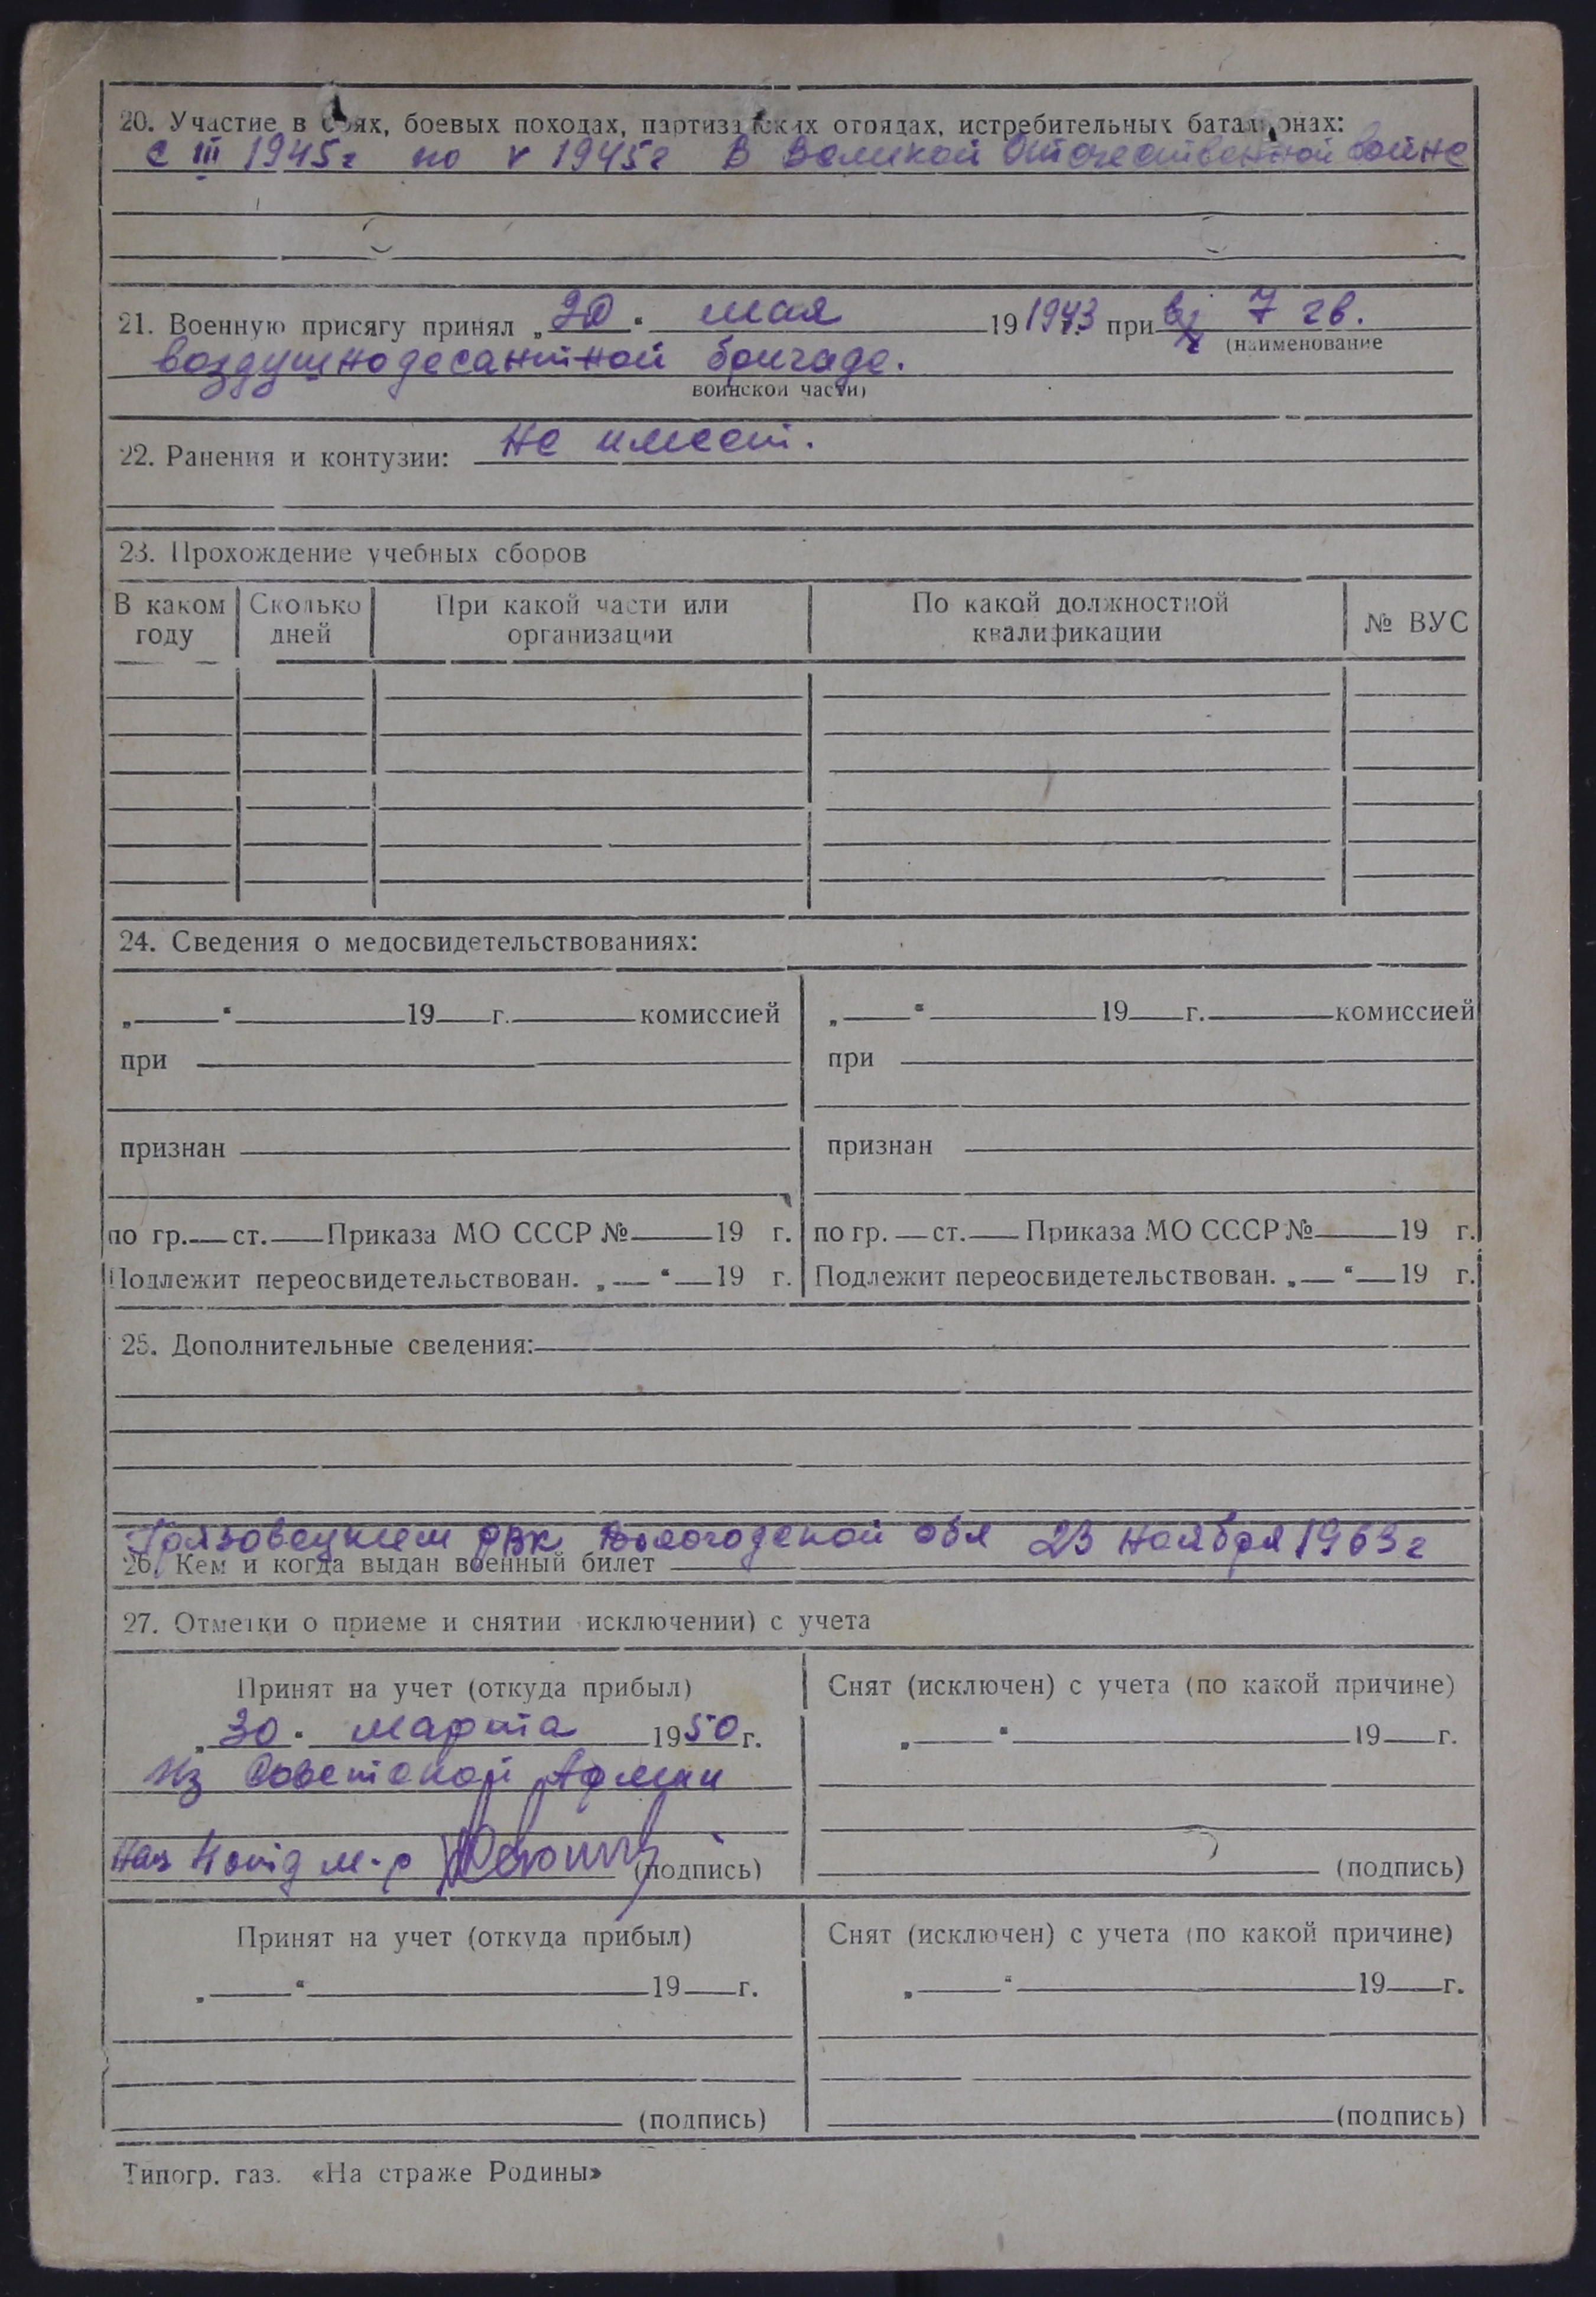 20. Участие в боях, боевых походах, партизанских отрядах, истребительных батальонах:
с III 1945г по V 1945г в Великой Отечественной войне
21. Военную присягу принял „20“ мая 19 1943 при 7 гв.
(наименование
воздушнодесантной бригаде.
воинской части)
22. Ранения и контузии: не имеет.
23. Прохождение учебных сборов
В каком году | Сколько дней | При какой части или организации | По какой должностной квалификации | № ВУС
24. Сведения о медосвидетельствованиях:
„ “ 19 г. комиссией
при
признан
по гр. ст. Приказа МО СССР № 19 г.
Подлежит переосвидетельствован. „ “ 19 г.
„ “ 19 г. комиссией
при
признан
по гр. ст. Приказа МО СССР № 19 г.
Подлежит переосвидетельствован. „ “ 19 г.
25. Дополнительные сведения:
Грязовецким РВК Вологодской обл 23 ноября 1963г
26. Кем и когда выдан военный билет
27. Отметки о приеме и снятии исключении) с учета
Принят на учет (откуда прибыл)
„30“ марта 1950 г.
Из Советской Армии
м-р (подпись)
Снят (исключен) с учета (по какой причине)
„ “ 19 г.
(подпись)
Принят на учет (откуда прибыл)
„ “ 19 г.
(подпись)
Снят (исключен) с учета (по какой причине)
„ “ 19 г.
(подпись)
Типогр. газ. «На страже Родины»